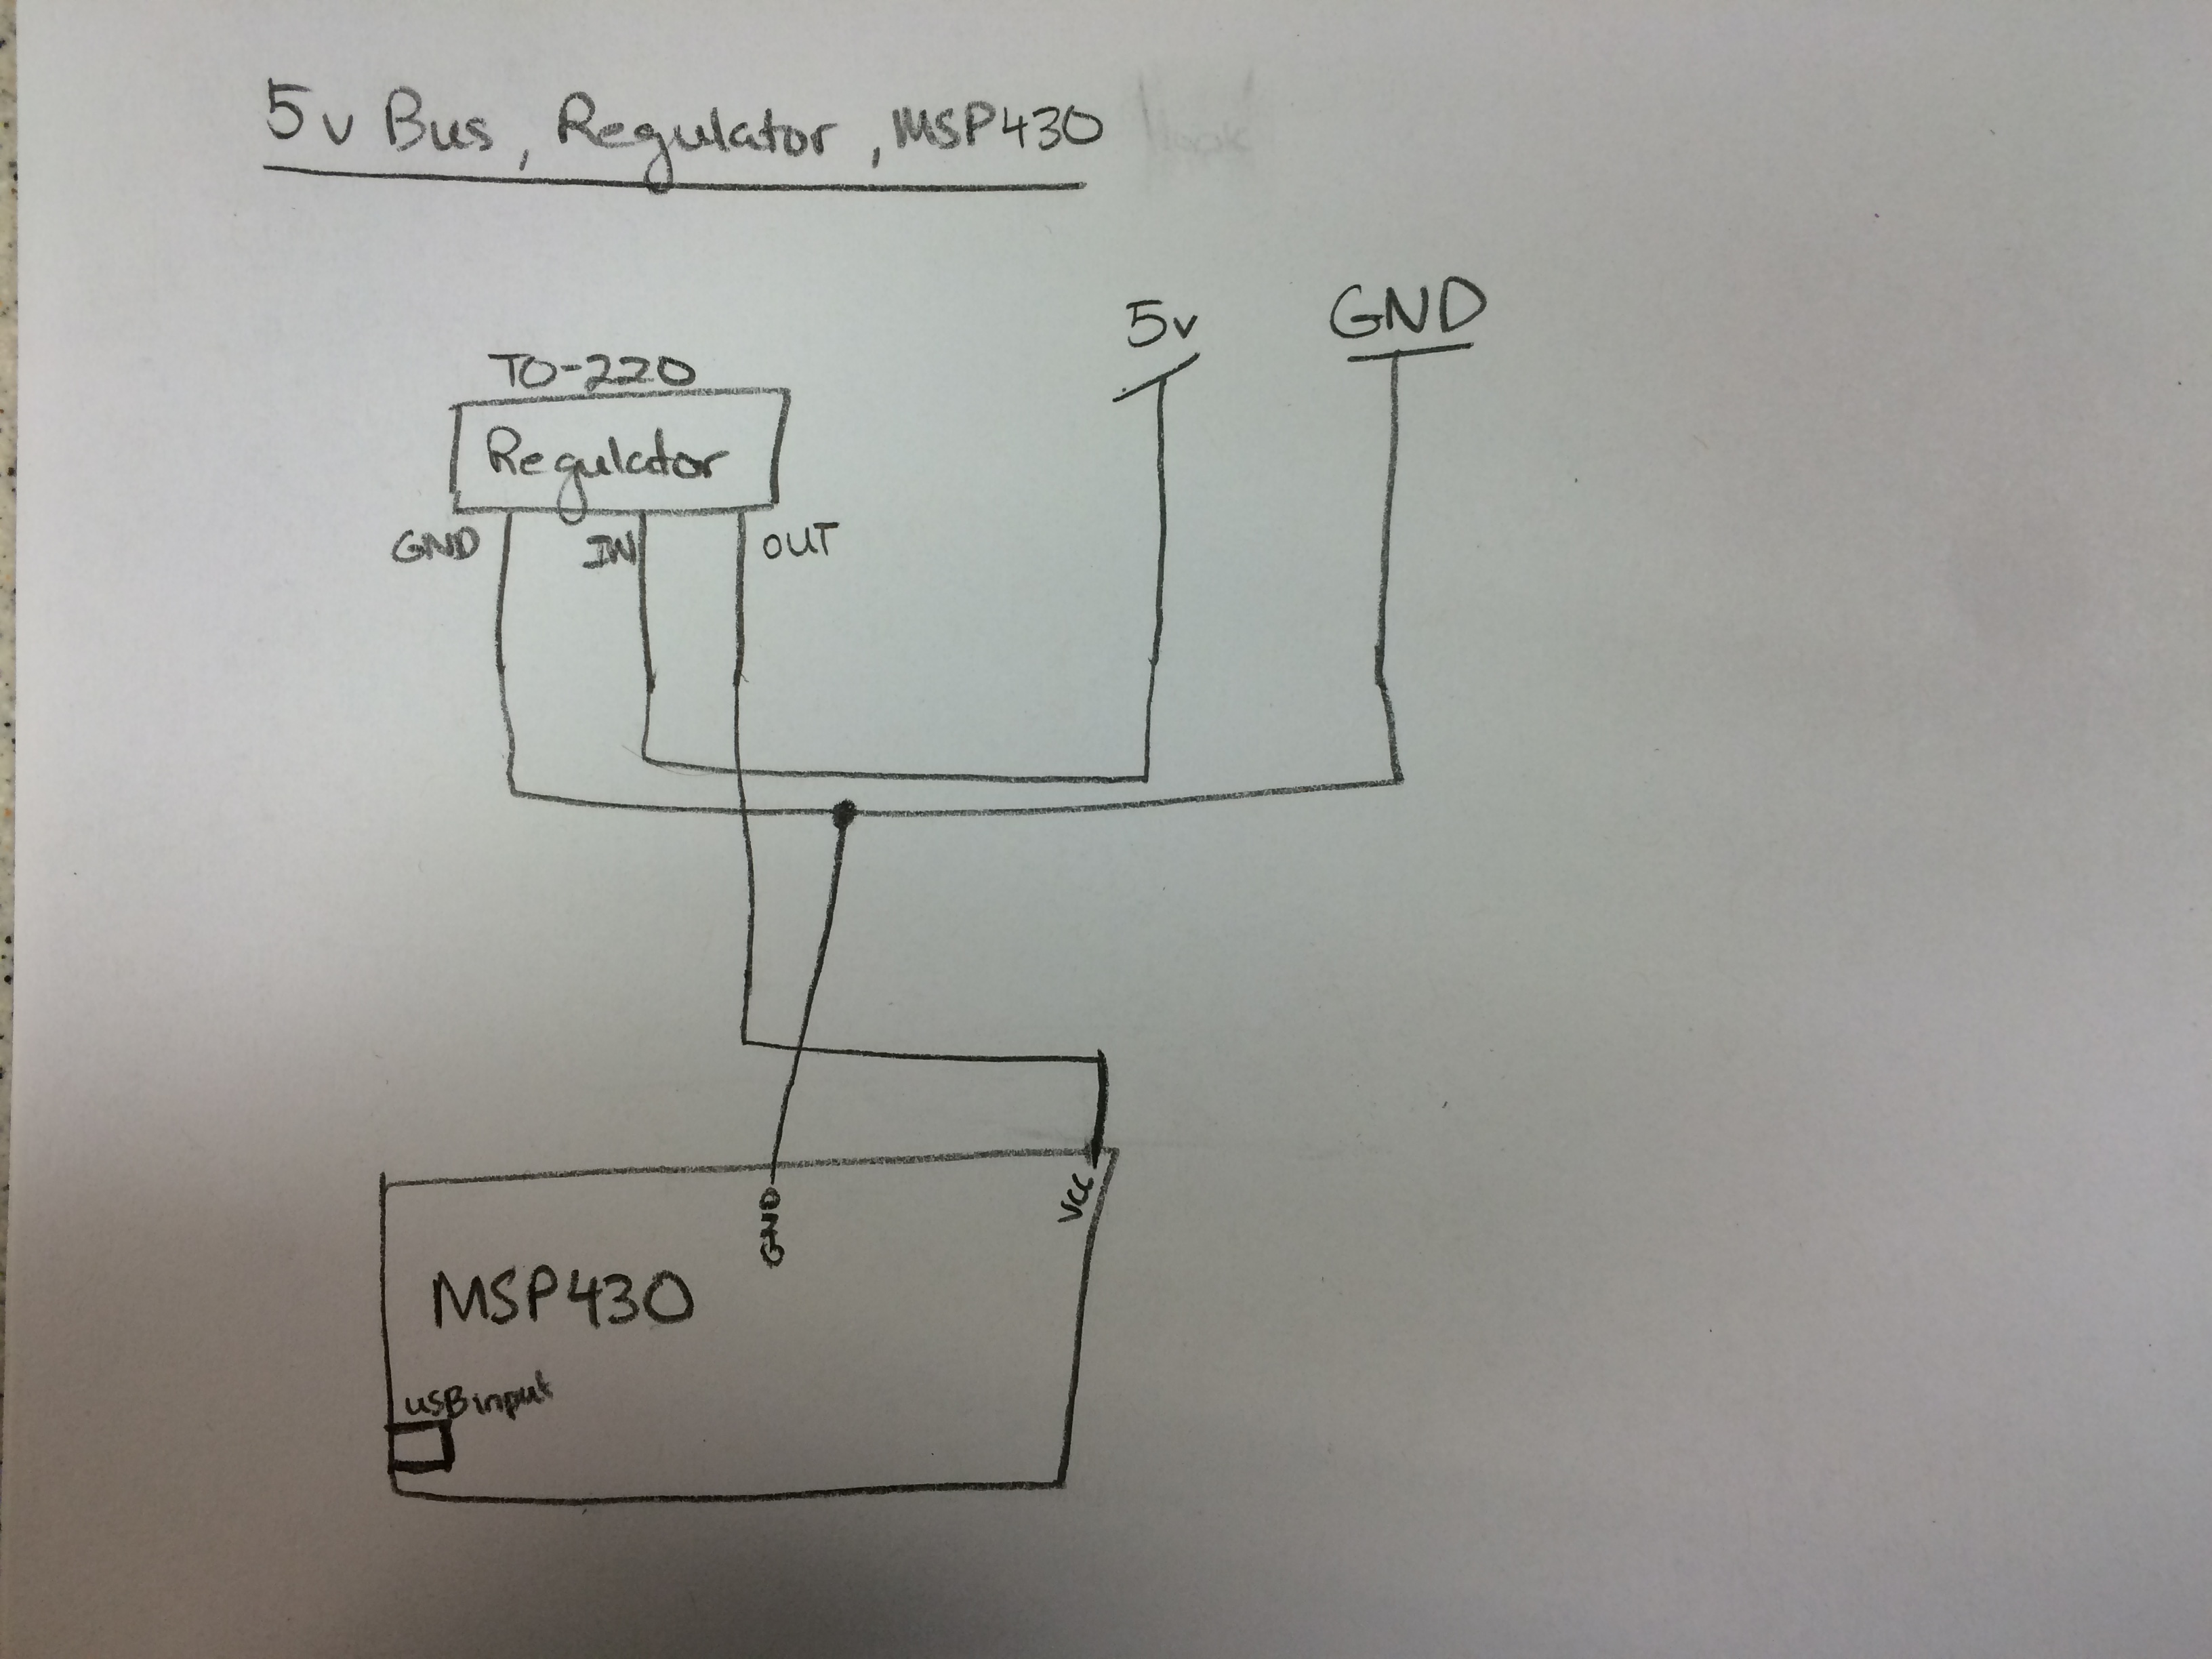 5v Bus, Regulator, MSP430
TO-220
Regulator
GND
IN
OUT
5v
GND
GND
VCC
MSP430
USB input